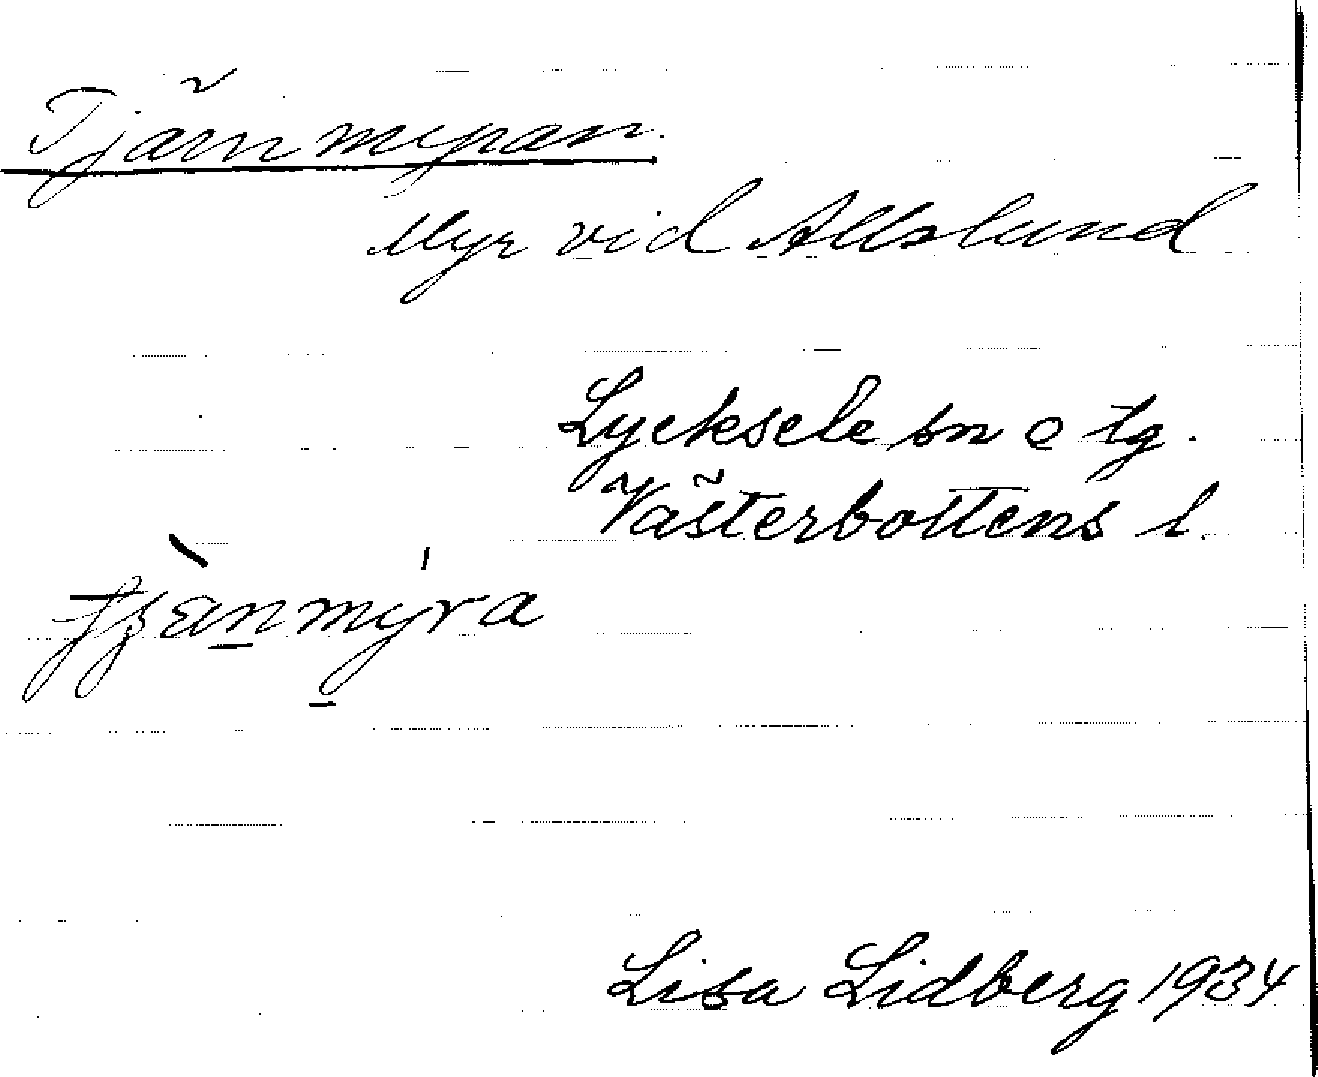 Tjärnmyran.
Myr vid Allslund
Lycksele sn o lg.
Västerbottens l.
Lisa Lidberg 1934